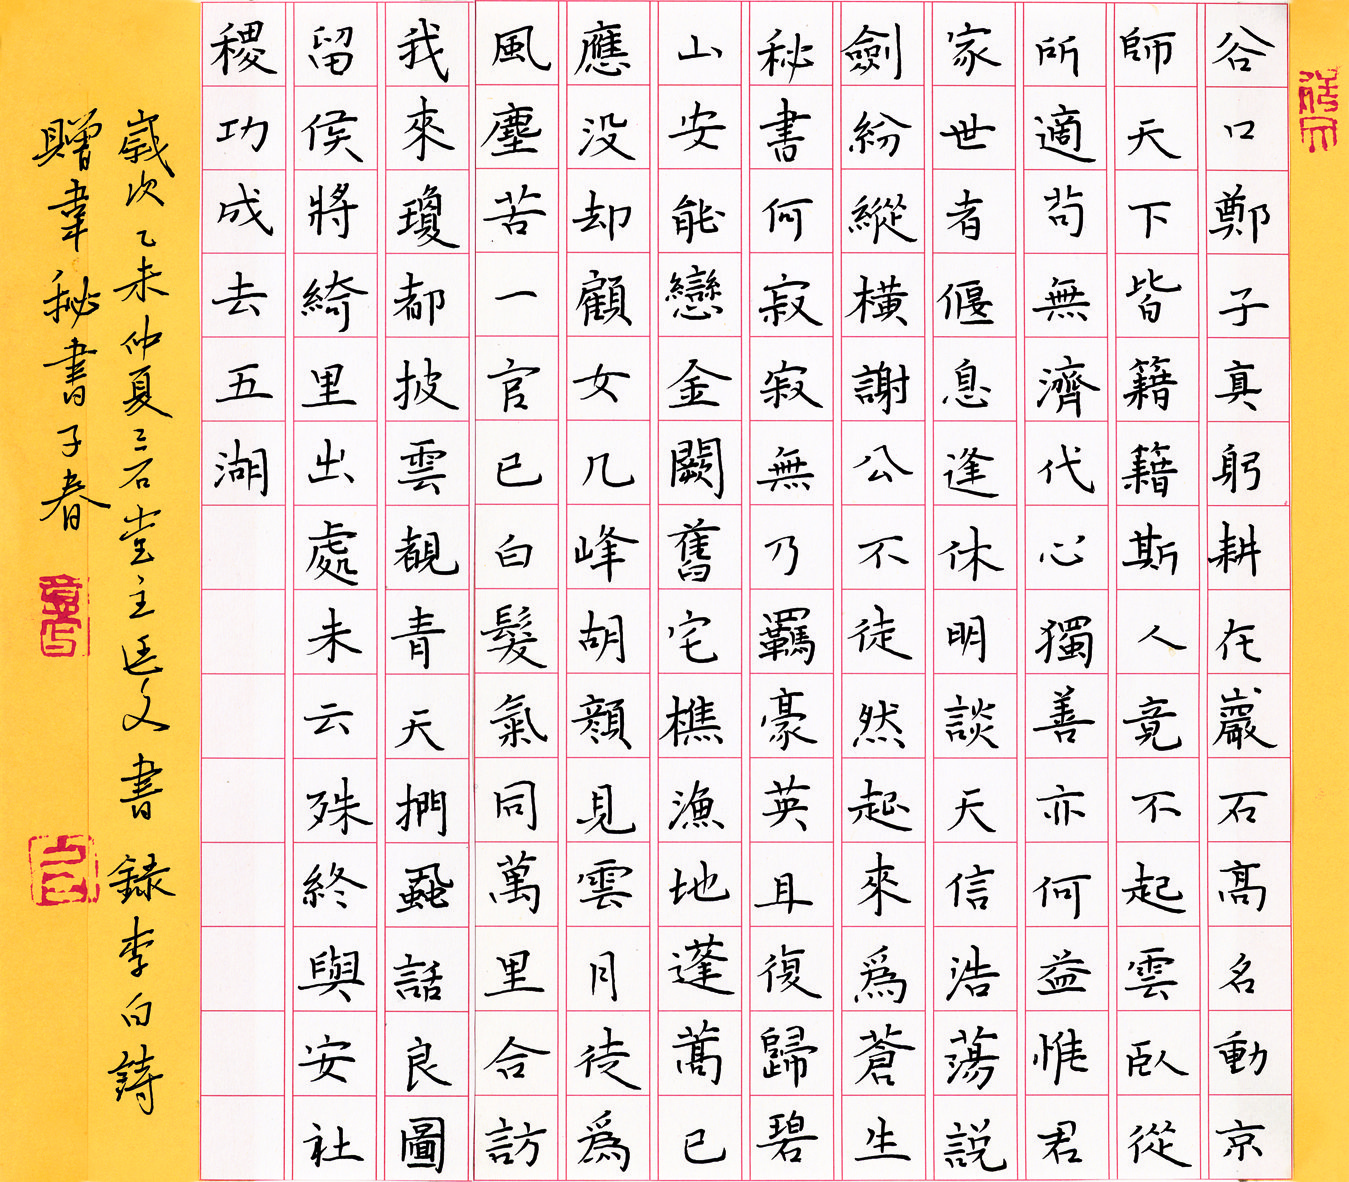 谷口鄭子真躬耕在巖石高名動京
師天下皆籍籍斯人竟不起雲臥從
所適苟無濟代心獨善亦何益惟君
家世者偃息逢休明談天信浩蕩説
劍紛縱橫謝公不徒然起來爲蒼生
秘書何寂寂無乃羈豪英且復歸碧
山安能戀金闕舊宅樵漁地蓬蒿已
應没却顧女几峰胡顏見雲月徒爲
風塵苦一官已白髮氣同萬里合訪
我來瓊都披雲觀青天捫蝨話良圖
留侯將綺里出處未云殊終與安社
稷功成去五湖
歲次乙未仲夏三石堂主廷文書錄李白詩
贈韋秘書子春